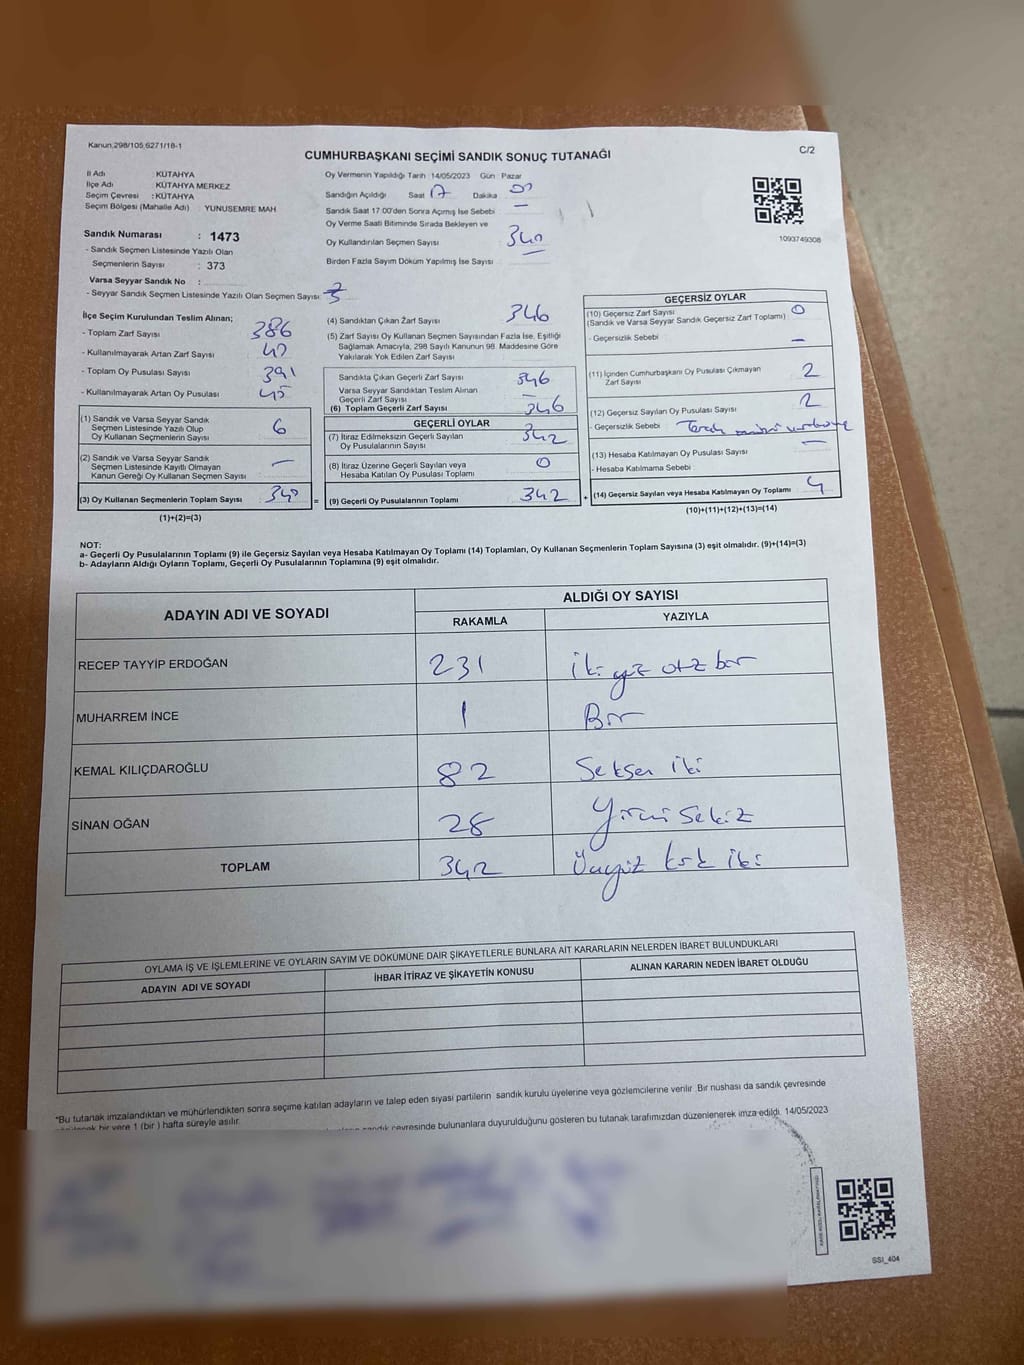 Kanun.298/105,6271/18-1
C/2
CUMHURBAŞKANI SEÇİMİ SANDIK SONUÇ TUTANAĞI
İl Adı : KÜTAHYA
İlçe Adı : KÜTAHYA MERKEZ
Seçim Çevresi : KÜTAHYA
Seçim Bölgesi (Mahalle Adı) : YUNUSEMRE MAH
Sandık Numarası : 1473
- Sandık Seçmen Listesinde Yazılı Olan
Seçmenlerin Sayısı : 373
Varsa Seyyar Sandık No :
- Seyyar Sandık Seçmen Listesinde Yazılı Olan Seçmen Sayısı:
Oy Vermenin Yapıldığı Tarih : 14/05/2023 Gün : Pazar
Sandığın Açıldığı Saat 17 Dakika
Sandık Saat 17:00'den Sonra Açımış İse Sebebi —
Oy Verme Saati Bitiminde Sırada Bekleyen ve
Oy Kullandırılan Seçmen Sayısı 340
Birden Fazla Sayım Döküm Yapılmış İse Sayısı
1093749308
İlçe Seçim Kurulundan Teslim Alınan;
- Toplam Zarf Sayısı 386
- Kullanılmayarak Artan Zarf Sayısı 40
- Toplam Oy Pusulası Sayısı 391
- Kullanılmayarak Artan Oy Pusulası 45
(1) Sandık ve Varsa Seyyar Sandık
Seçmen Listesinde Yazılı Olup
Oy Kullanan Seçmenlerin Sayısı 6
(2) Sandık ve Varsa Seyyar Sandık
Seçmen Listesinde Kayıtlı Olmayan
Kanun Gereği Oy Kullanan Seçmen Sayısı —
(3) Oy Kullanan Seçmenlerin Toplam Sayısı 340 =
(1)+(2)=(3)
(4) Sandıktan Çıkan Zarf Sayısı 346
(5) Zarf Sayısı Oy Kullanan Seçmen Sayısından Fazla İse, Eşitliği
Sağlamak Amacıyla, 298 Sayılı Kanunun 98. Maddesine Göre
Yakılarak Yok Edilen Zarf Sayısı
Sandıkta Çıkan Geçerli Zarf Sayısı 346
Varsa Seyyar Sandıktan Teslim Alınan
Geçerli Zarf Sayısı —
(6) Toplam Geçerli Zarf Sayısı 346
GEÇERLİ OYLAR
(7) İtiraz Edilmeksizin Geçerli Sayılan
Oy Pusulasının Sayısı 342
(8) İtiraz Üzerine Geçerli Sayılan veya
Hesaba Katılan Oy Pusulası Toplamı 0
(9) Geçerli Oy Pusulalarının Toplamı 342 +
GEÇERSİZ OYLAR
(10) Geçersiz Zarf Sayısı
(Sandık ve Varsa Seyyar Sandık Geçersiz Zarf Toplamı) 0
- Geçersizlik Sebebi —
(11) İçinden Cumhurbaşkanı Oy Pusulası Çıkmayan
Zarf Sayısı 2
(12) Geçersiz Sayılan Oy Pusulası Sayısı 2
- Geçersizlik Sebebi Tercih mührü
(13) Hesaba Katılmayan Oy Pusulası Sayısı —
- Hesaba Katılmama Sebebi
(14) Geçersiz Sayılan veya Hesaba Katılmayan Oy Toplamı 4
(10)+(11)+(12)+(13)=(14)
NOT:
a- Geçerli Oy Pusulalarının Toplamı (9) ile Geçersiz Sayılan veya Hesaba Katılmayan Oy Toplamı (14) Toplamları, Oy Kullanan Seçmenlerin Toplam Sayısına (3) eşit olmalıdır. (9)+(14)=(3)
b- Adayların Aldığı Oyların Toplamı, Geçerli Oy Pusulalarının Toplamına (9) eşit olmalıdır.
ADAYIN ADI VE SOYADI
ALDIĞI OY SAYISI
RAKAMLA YAZIYLA
RECEP TAYYİP ERDOĞAN 231 İki yüz otz bir
MUHARREM İNCE 1 Bir
KEMAL KILIÇDAROĞLU 82 Seksen iki
SİNAN OĞAN 28 Yirmi Sekiz
TOPLAM 342 Üçyüz kırk iki
OYLAMA İŞ VE İŞLEMLERİNE VE OYLARIN SAYIM VE DÖKÜMÜNE DAİR ŞİKAYETLERLE BUNLARA AİT KARARLARIN NELERDEN İBARET BULUNDUKLARI
ADAYIN ADI VE SOYADI İHBAR İTİRAZ VE ŞİKAYETİN KONUSU ALINAN KARARIN NEDEN İBARET OLDUĞU
*Bu tutanak imzalandıktan ve mühürlendikten sonra seçime katılan adayların ve talep eden siyasi partilerin sandık kurulu üyelerine veya gözlemcilerine verilir .Bir nüshası da sandık çevresinde
bir yere 1 (bir ) hafta süreyle asılır.
sandık çevresinde bulunanlara duyurulduğunu gösteren bu tutanak tarafımızdan düzenlenerek imza edildi. 14/05/2023
SSI_404